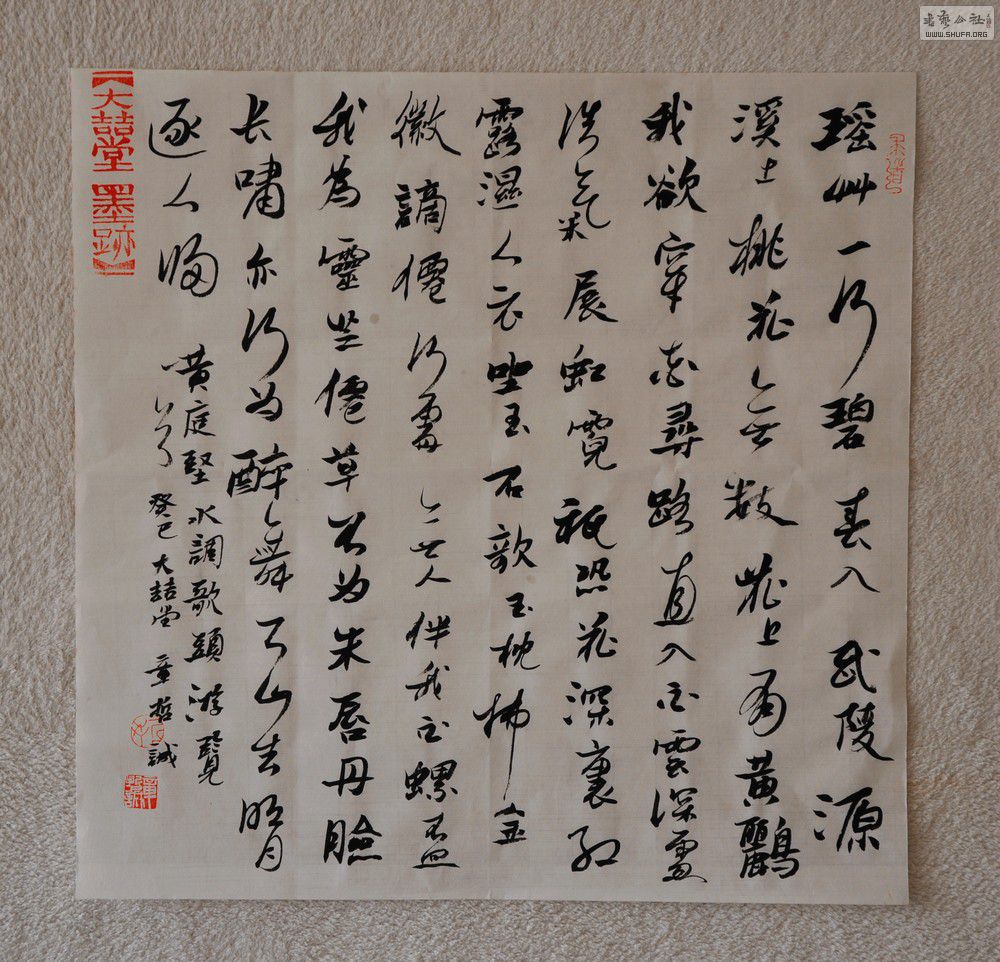 瑶艸一何碧春入武陵源
溪上桃花無數花上有黃鸝
我欲穿花尋路直入白雲深處
浩氣展虹霓祇恐花深裏紅
露濕人衣坐玉石欹玉枕拂金
徽謫僊何處無人伴我白螺盃
我為靈芝僊草不为朱唇丹臉
长嘯亦何为醉舞下山去明月
逐人歸
黃庭堅水調歌頭游覽
癸巳大喆堂章哲誠
大喆堂墨跡
書藝公社
WWW.SHUFA.ORG